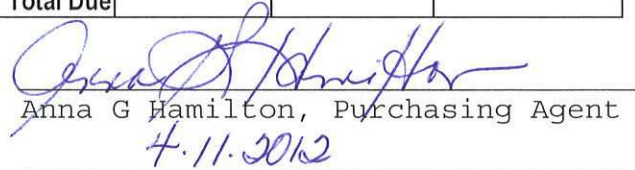 Total Due
Anna G Hamilton
Anna G Hamilton, Purchasing Agent
4.11.2012